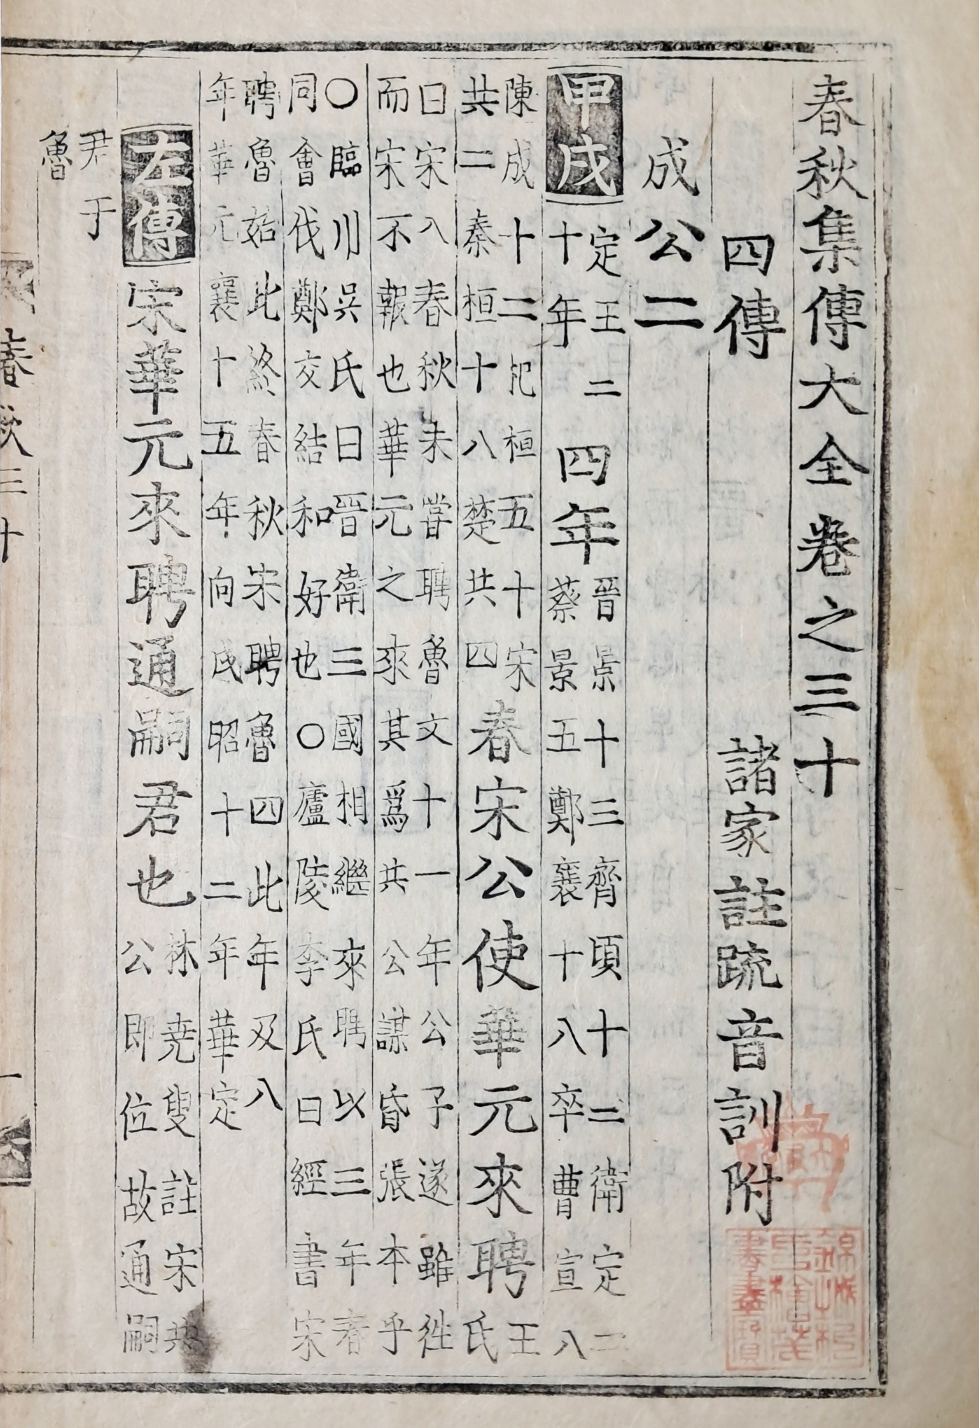 春秋集傳大全卷之三十
四傳 諸家註疏音訓附
成公二
甲戌 定王二十年 四年 晉景十三齊頃十二衛定二蔡景五鄭襄十八卒曹宣八
陳成十二杞桓五十宋共二秦桓十八楚共四 春宋公使華元來聘 王氏
曰宋入春秋未嘗聘魯文十一年公子遂雖徃
而宋不報也華元之來其爲共公謀昏張本乎
〇臨川吳氏曰晉衛三國相繼來聘以三年春
同會伐鄭交結和好也〇廬陵李氏曰經書宋
聘魯始此終春秋宋聘魯四此年及八
年華元襄十五年向戌昭十二年華定
左傳 宋華元來聘通嗣君也 林堯叟註宋共公即位故通嗣
君于
魯
春秋三十 一